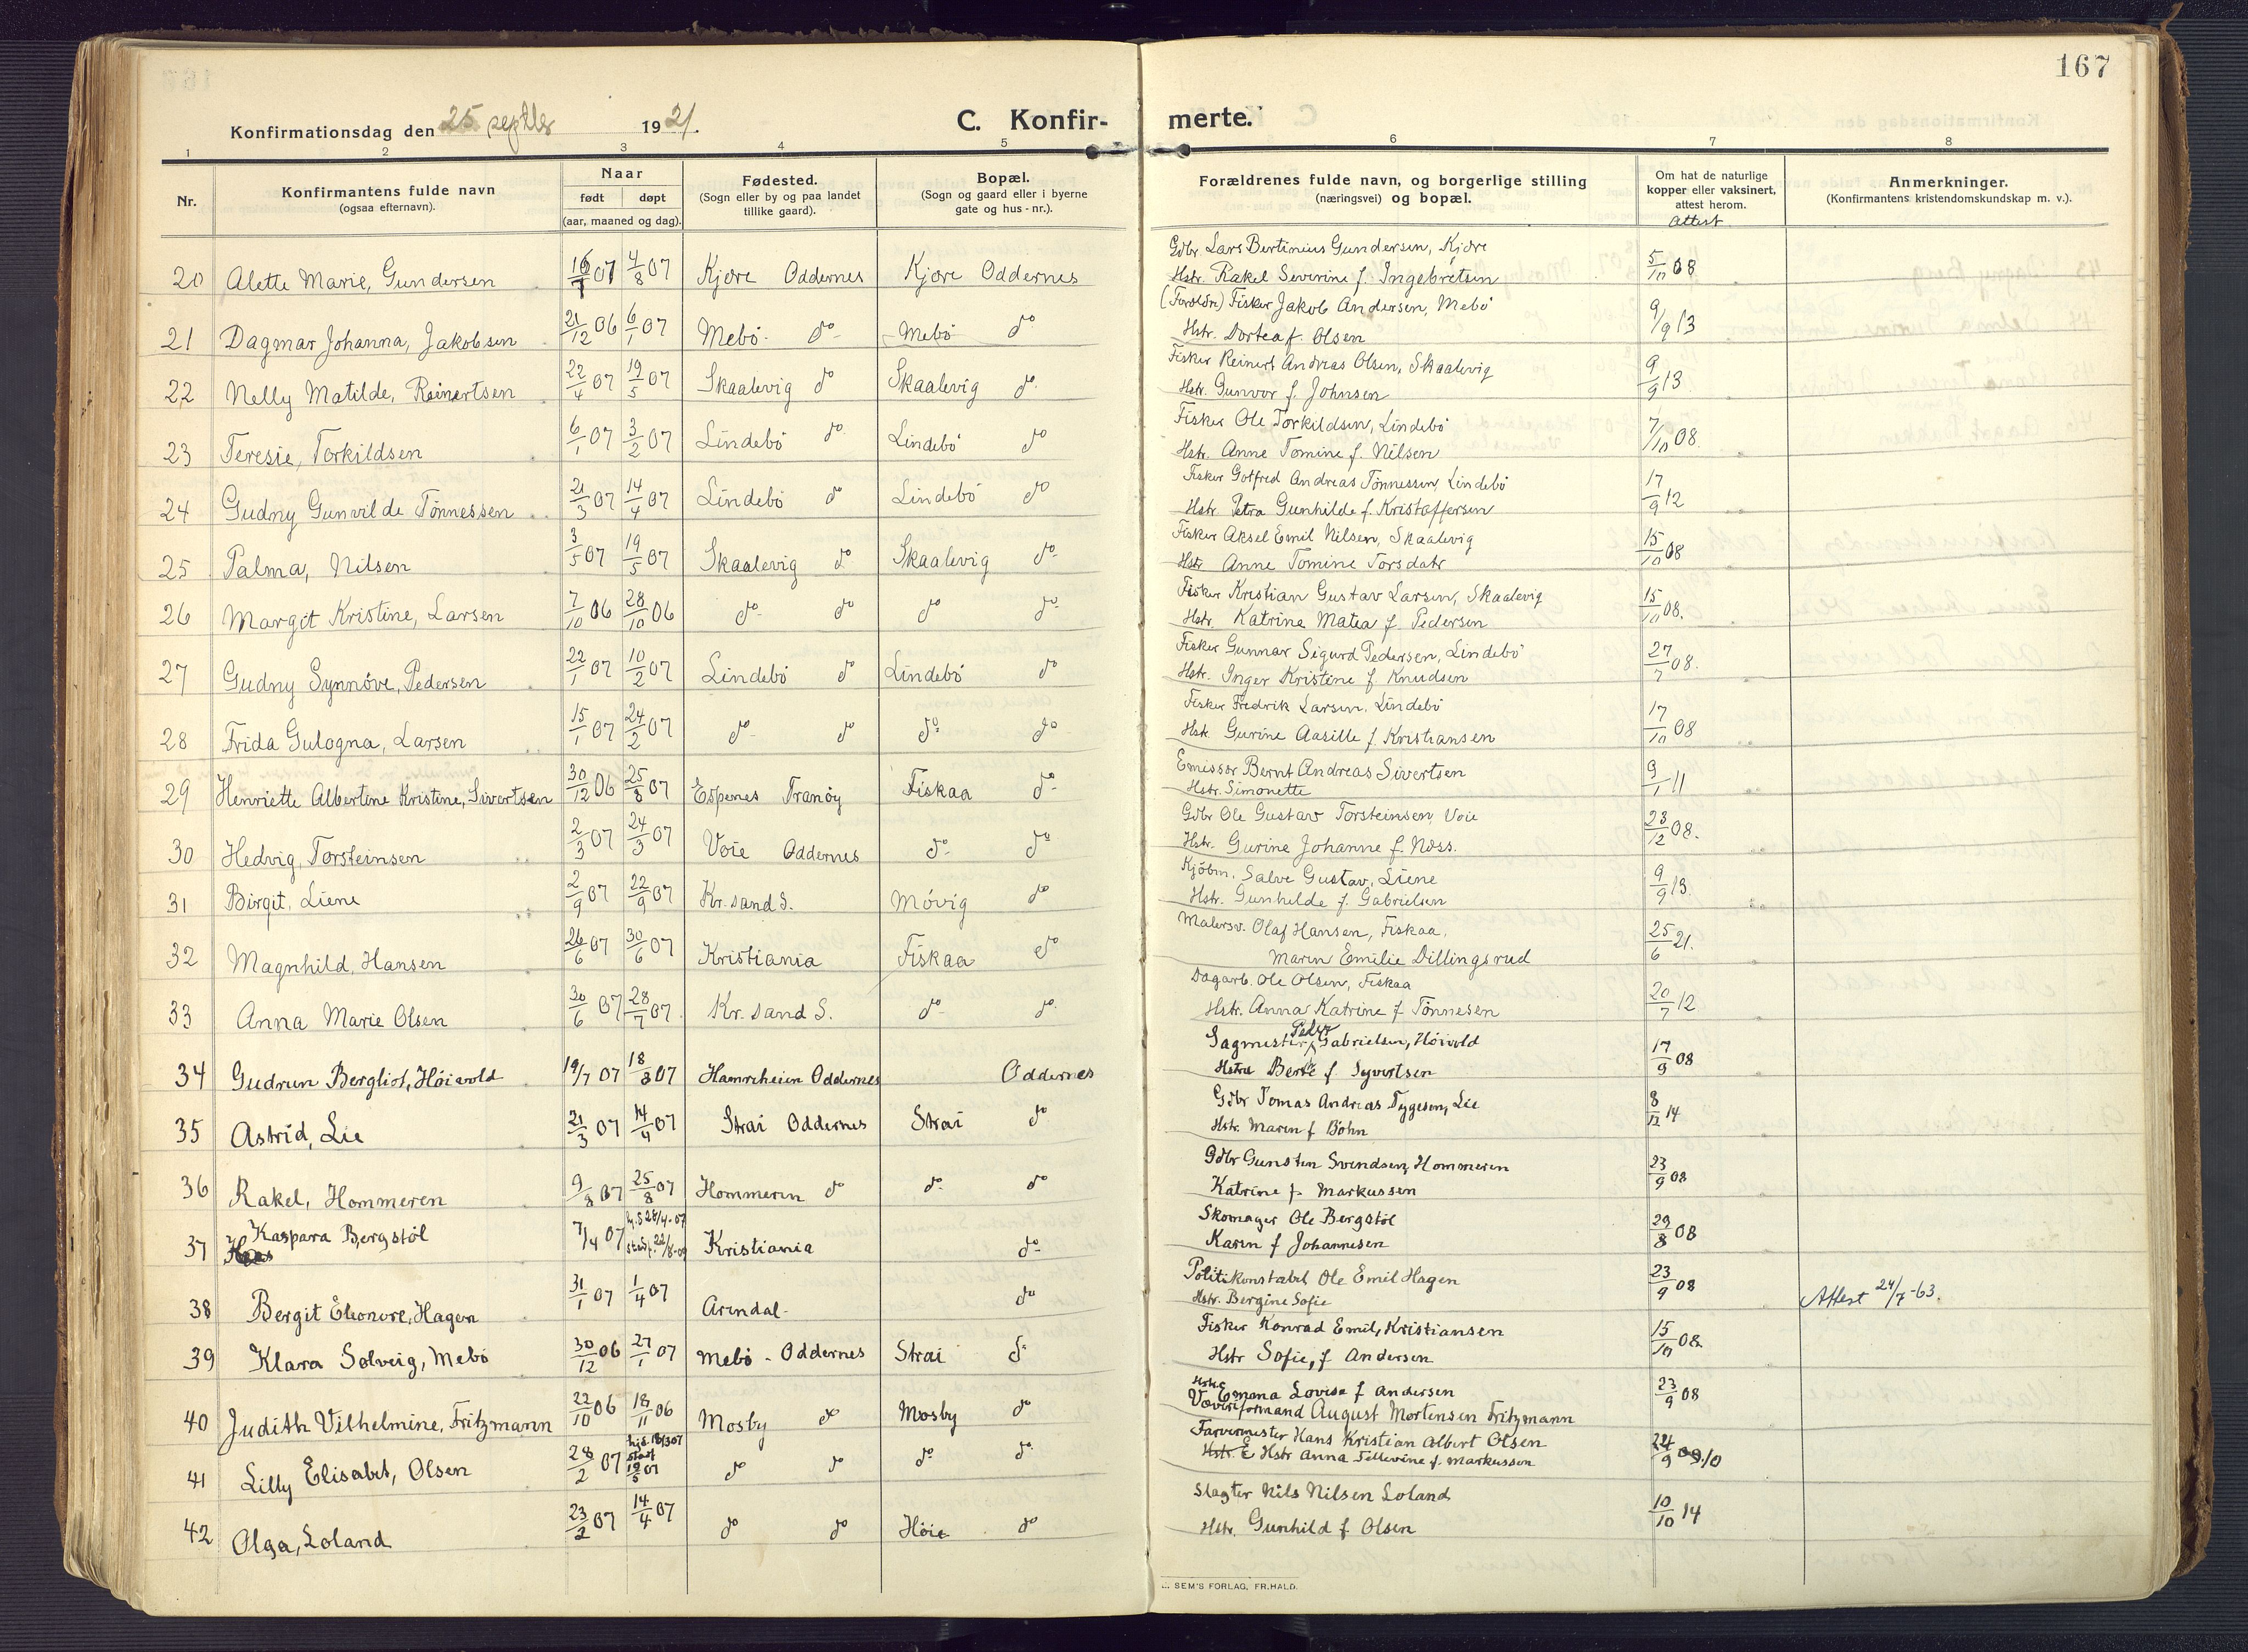 167
Konfirmationsdag den 25 septbr 1921.
C. Konfirmerte.
1 2 3 4 5 6 7 8
Nr. Konfirmantens fulde navn (ogsaa efternavn). Naar født døpt (aar, maaned og dag). Fødested. (Sogn eller by og paa landet tillike gaard). Bopæl. (Sogn og gaard eller i byerne gate og hus-nr.). Forældrenes fulde navn, og borgerlige stilling (næringsvei) og bopæl. Om hat de naturlige kopper eller vaksinert, attest herom. Attest Anmerkninger. (Konfirmantens kristendomskundskap m. v.).
20 Alette Marie, Gundersen 07 4/8 07 Kjære Oddernes Kjære Oddernes Gdbr. Lars Bertinius Gundersen, Kjære
Hstr. Rakel Severine f. Ingebretsen 5/10 08
21 Dagmar Johanna, Jakobsen 21/12 06 6/1 07 Mebö do Mebö do (Forældre) Fisker Jakob Andersen, Mebö
Hstr. Dortea f. Olsen 9/9 13
22 Nelly Matilde, Reinertsen 22/4 07 19/5 07 Skaalevig do Skaalevig do Fisker Reinert Andreas Olsen, Skaalevig
Hstr. Gunvor f. Johnsen 9/9 13
23 Teresie, Torkildsen 6/1 07 3/2 07 Lindebö do Lindebö do Fisker Ole Torkildsen, Lindebö
Hstr. Anne Tomine f. Nilsen 7/10 08.
24 Gudny Gunvilde Tönnessen 21/3 07 14/4 07 Lindebö do Lindebö do Fisker Gotfred Andreas Tönnessen, Lindebö
Hstr. Petra Gunhilde f. Kristoffersen 17/9 12
25 Palma, Nilsen 3/5 07 19/5 07 Skaalevig do Skaalevig do Fisker Aksel Emil Nilsen, Skaalevig
Hstr Anne Tomine Torsdatr 15/10 08
26 Margit Kristine, Larsen 7/10 06 28/10 06 do do do do Fisker Kristian Gustav Larsen, Skaalevig
Hstr. Katrine Matea f. Pedersen 15/10 08.
27 Gudny Synnöve, Pedersen 22/1 07 10/2 07 Lindebö do Lindebö do Fisker Gunnar Sigurd Pedersen, Lindebö
Hstr. Inger Kristine f. Knudsen 27/7 08.
28 Frida Gulogna, Larsen 15/1 07 24/2 07 do do do do Fisker Fredrik Larsen, Lindebö
Hstr. Gurine Aasille f. Kristiansen 17/10 08
29 Henriette Albertine Kristine, Sivertsen 30/12 06 25/8 07 Espenes Tranöy Fiskaa do Emissær Bernt Andreas Sivertsen
Hstr. Simonette 9/1 11
30 Hedvig, Torsteinsen 2/3 07 24/3 07 Voie Oddernes do do Gdbr Ole Gustav Torsteinsen, Voie
Hstr. Gurine Johanne f. Næss. 23/12 08.
31 Birgit, Liene 2/9 07 22/9 07 Kr.sand S. Mövig do Kjöbm. Salve Gustav, Liene
Hstr. Gunhilde f. Gabrielsen 9/9 13.
32 Magnhild, Hansen 26/6 07 30/6 07 Kristiania Fiskaa do Malersv. Olaf Hansen, Fiskaa,
Maren Emilie Dillingsrud 25/6 21.
33 Anna Marie Olsen 30/6 07 28/7 07 Kr.sand S. do do Dagarb. Ole Olsen, Fiskaa
Hstr. Anna Katrine f Tönnesen 20/7 12
34 Gudrun Bergliot, Höivold 19/7 07 18/8 07 Hamreheien Oddernes Oddernes Sagmester Peder Gabrielsen, Höivold
Hstru Berte f Syvertsen 17/9 08
35 Astrid, Lie 21/3 07 14/4 07 Strai Oddernes Strai do Gdbr Tomas Andreas Tygesen, Lie
Hstr. Maren f Böhn 8/12 14
36 Rakel, Hommeren 9/8 07 25/8 07 Hommeren do do do Gdbr Gunsten Svendsen, Hommeren
Katrine f. Markussen 23/9 08
37 Kaspara Bergstöl 7/4 07 28/4-07 Kristiania do Skomager Ole Bergstöl
Karen f Johannesen 29/8 08
38 Bergit Eleonore, Hagen 31/1 07 1/4 07 Arendal. do Politikonstabel Ole Emil Hagen
Hstr. Bergine Sofie 23/9 08 Attest 24/7-63.
39 Klara Solveig, Mebö 30/12 06 27/1 07 Mebö - Oddernes Strai do Fisker Konrad Emil, Kristiansen
Hstr Sofie, f Andersen 15/10 08
40 Judith Vilhelmine, Fritzmann 22/10 06 18/11 06 Mosby do Mosby do Hstr Emana Lovise f Andersen
Væveriformand August Mortensen Fritzmann 23/9 08
41 Lilly Elisabet, Olsen 28/2 07 hjd. 18/3 07 stadf 19/5 07 do do do do Farvermester Hans Kristian Albert Olsen
Hstr Anna Tellevine f. Markussen 24/9 10
42 Olga, Loland 23/2 07 14/4 07 do do Höie do Slagter Nils Nilsen Loland
Hstr. Gunhild f Olsen 10/10 14
SEM'S FORLAG, FR.HALD.